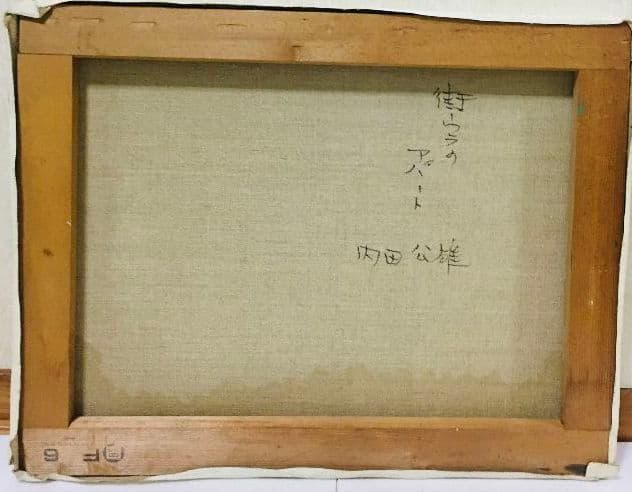 街ウラの
アパート
内田 公雄
F6